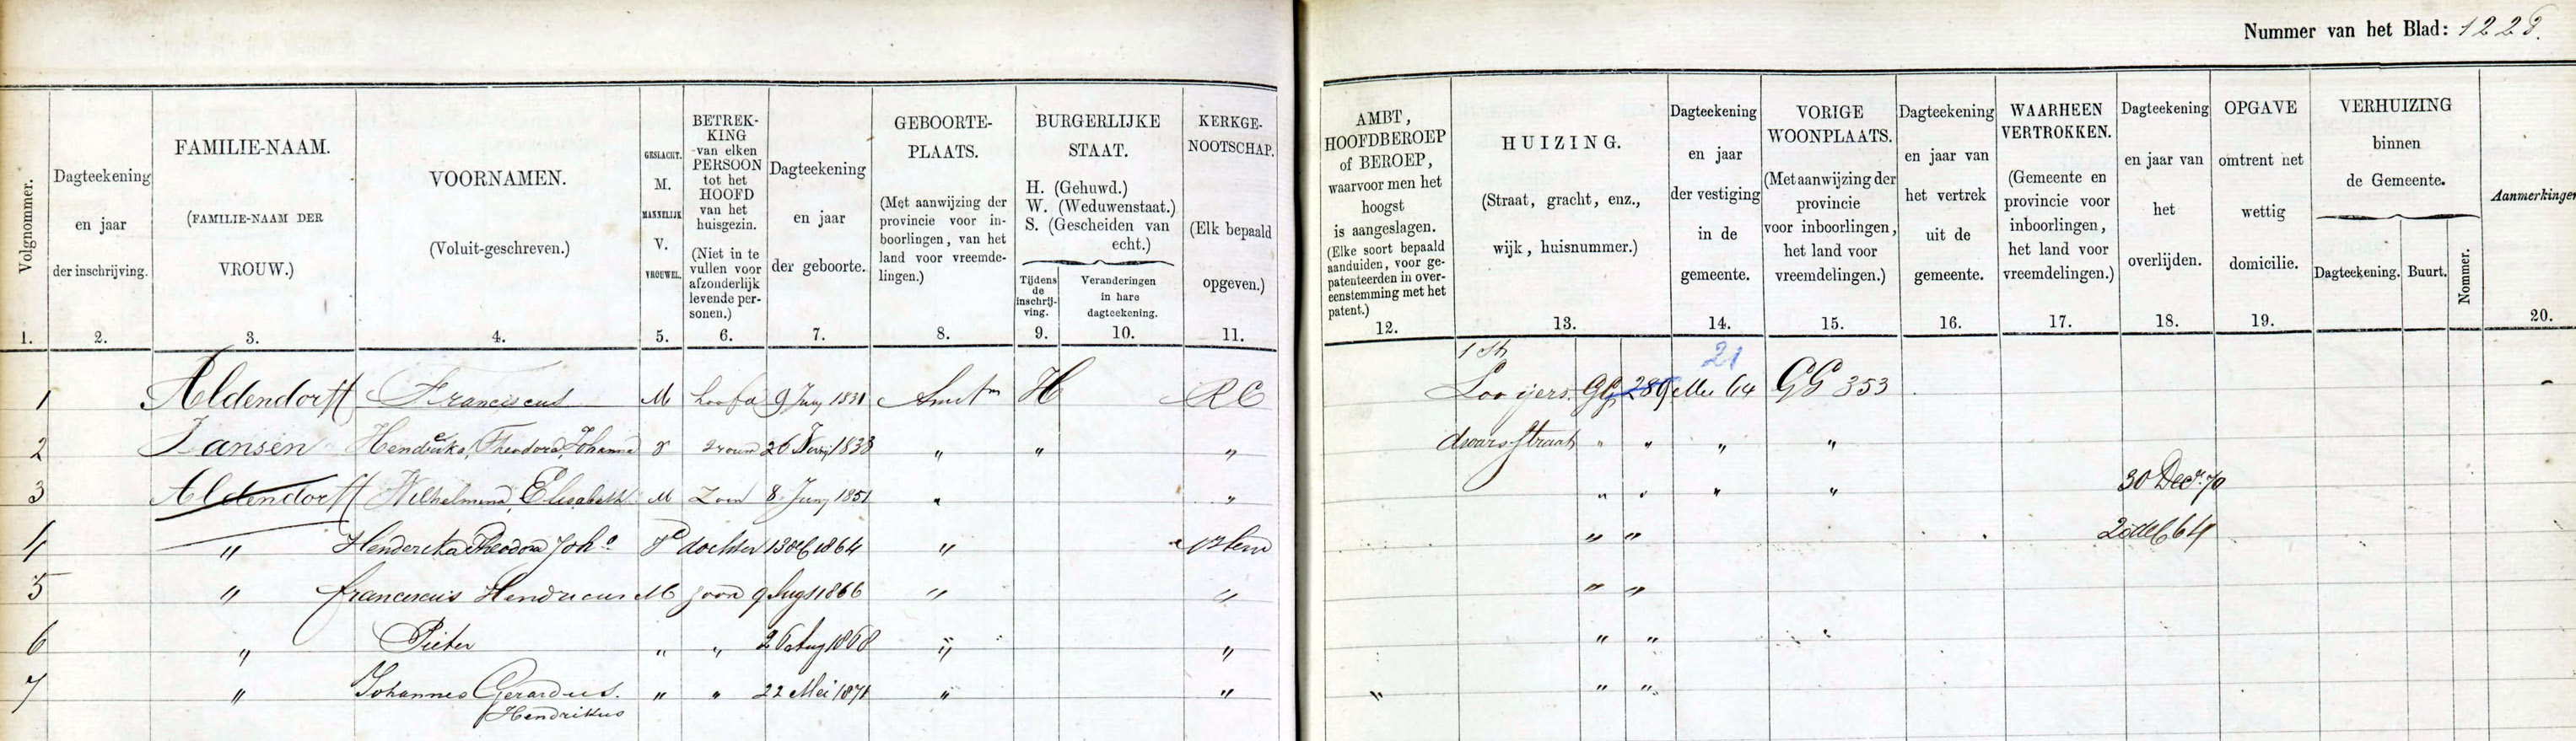 Nummer van het Blad: 1228.
Volgnommer.
1.
Dagteekening
en jaar
der inschrijving.
2.
FAMILIE-NAAM.
(FAMILIE-NAAM DER
VROUW.)
3.
VOORNAMEN.
(Voluit-geschreven.)
4.
GESLACHT.
M.
MANNELIJK
V.
VROUWEL.
5.
BETREK-
KING
van elken
PERSOON
tot het
HOOFD
van het
huisgezin.
(Niet in te
vullen voor
afzonderlijk
levende per-
sonen.)
6.
Dagteekening
en jaar
der geboorte.
7.
GEBOORTE-
PLAATS.
(Met aanwijzing der
provincie voor in-
boorlingen, van het
land voor vreemde-
lingen.)
8.
BURGERLIJKE
STAAT.
H. (Gehuwd.)
W. (Weduwenstaat.)
S. (Gescheiden van
echt.)
Tijdens
de
inschrij-
ving.
9.
Veranderingen
in hare
dagteekening.
10.
KERKGE-
NOOTSCHAP.
(Elk bepaald
opgeven.)
11.
AMBT,
HOOFDBEROEP
of BEROEP,
waarvoor men het
hoogst
is aangeslagen.
(Elke soort bepaald
aanduiden, voor ge-
patenteerden in over-
eenstemming met het
patent.)
12.
HUIZING.
(Straat, gracht, enz.,
wijk, huisnummer.)
13.
Dagteekening
en jaar
der vestiging
in de
gemeente.
14.
VORIGE
WOONPLAATS.
(Met aanwijzing der
provincie
voor inboorlingen,
het land voor
vreemdelingen.)
15.
Dagteekening
en jaar van
het vertrek
uit de
gemeente.
16.
WAARHEEN
VERTROKKEN.
(Gemeente en
provincie voor
inboorlingen,
het land voor
vreemdelingen.)
17.
Dagteekening
en jaar van
het
overlijden.
18.
OPGAVE
omtrent het
wettig
domicilie.
19.
VERHUIZING
binnen
de Gemeente.
Dagteekening.
Buurt.
Nommer.
Aanmerkingen
20.
1 Sth 21
1 Aldendorff Franciscus M hoofd 9 Juny 1831 Amstm H RC Looijers GG 289 Mei 64 GG 353
2 Jansen Henderika, Theodora, Johanna V vrouw 26 1838 " " " dwarsstraat " " " "
3 Aldendorff Wilhelmina, Elisabeth M Zoon 8 Juny 1851 " " " " " " 30 Decr. 70
4 " Henderika Theodora Joha V dochter 13 Oct 1864 " " " 64
5 " Franciscus Hendricus M zoon 9 Augs 1866 " " " "
6 " Pieter " " 26 Aug 1868 " " " "
7 " Johannes Gerardus " " 22 Mei 1871 " " " " "
Hendrikus